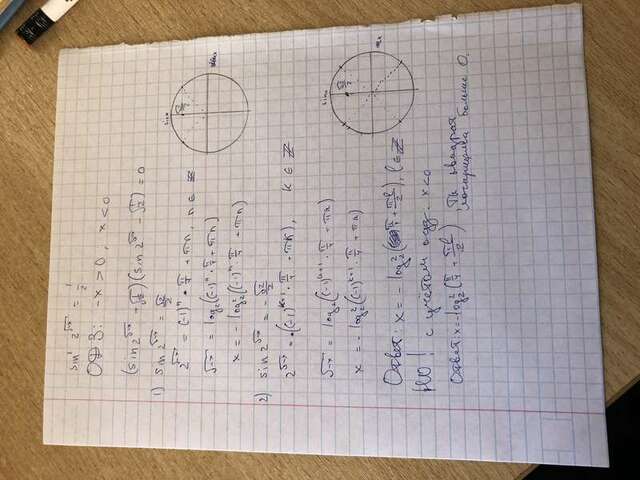 sin² 2^√-x = 1/2
ОДЗ: -x > 0, x < 0
(sin 2^√-x + 1/√2)(sin 2^√-x - 1/√2) = 0
1) sin 2^√-x = √2/2
2^√-x = (-1)^n · π/4 + πn, n ∈ ℤ
√-x = log₂((-1)^n · π/4 + πn)
x = - log₂²((-1)^n · π/4 + πn)
2) sin 2^√-x = - √2/2
2^√-x = ((-1)^k+1 · π/4 + πk), k ∈ ℤ
√-x = log₂((-1)^k+1 · π/4 + πk)
x = - log₂²((-1)^k+1 · π/4 + πk)
Ответ: x = - log₂²(π/4 + πl/2), l ∈ ℤ
НО! с учётом одз. x < 0
Ответ: x = - log₂²(π/4 + πl/2), тк квадрат
логарифма больше 0.
sin x
√2/2
sin x
√2/2